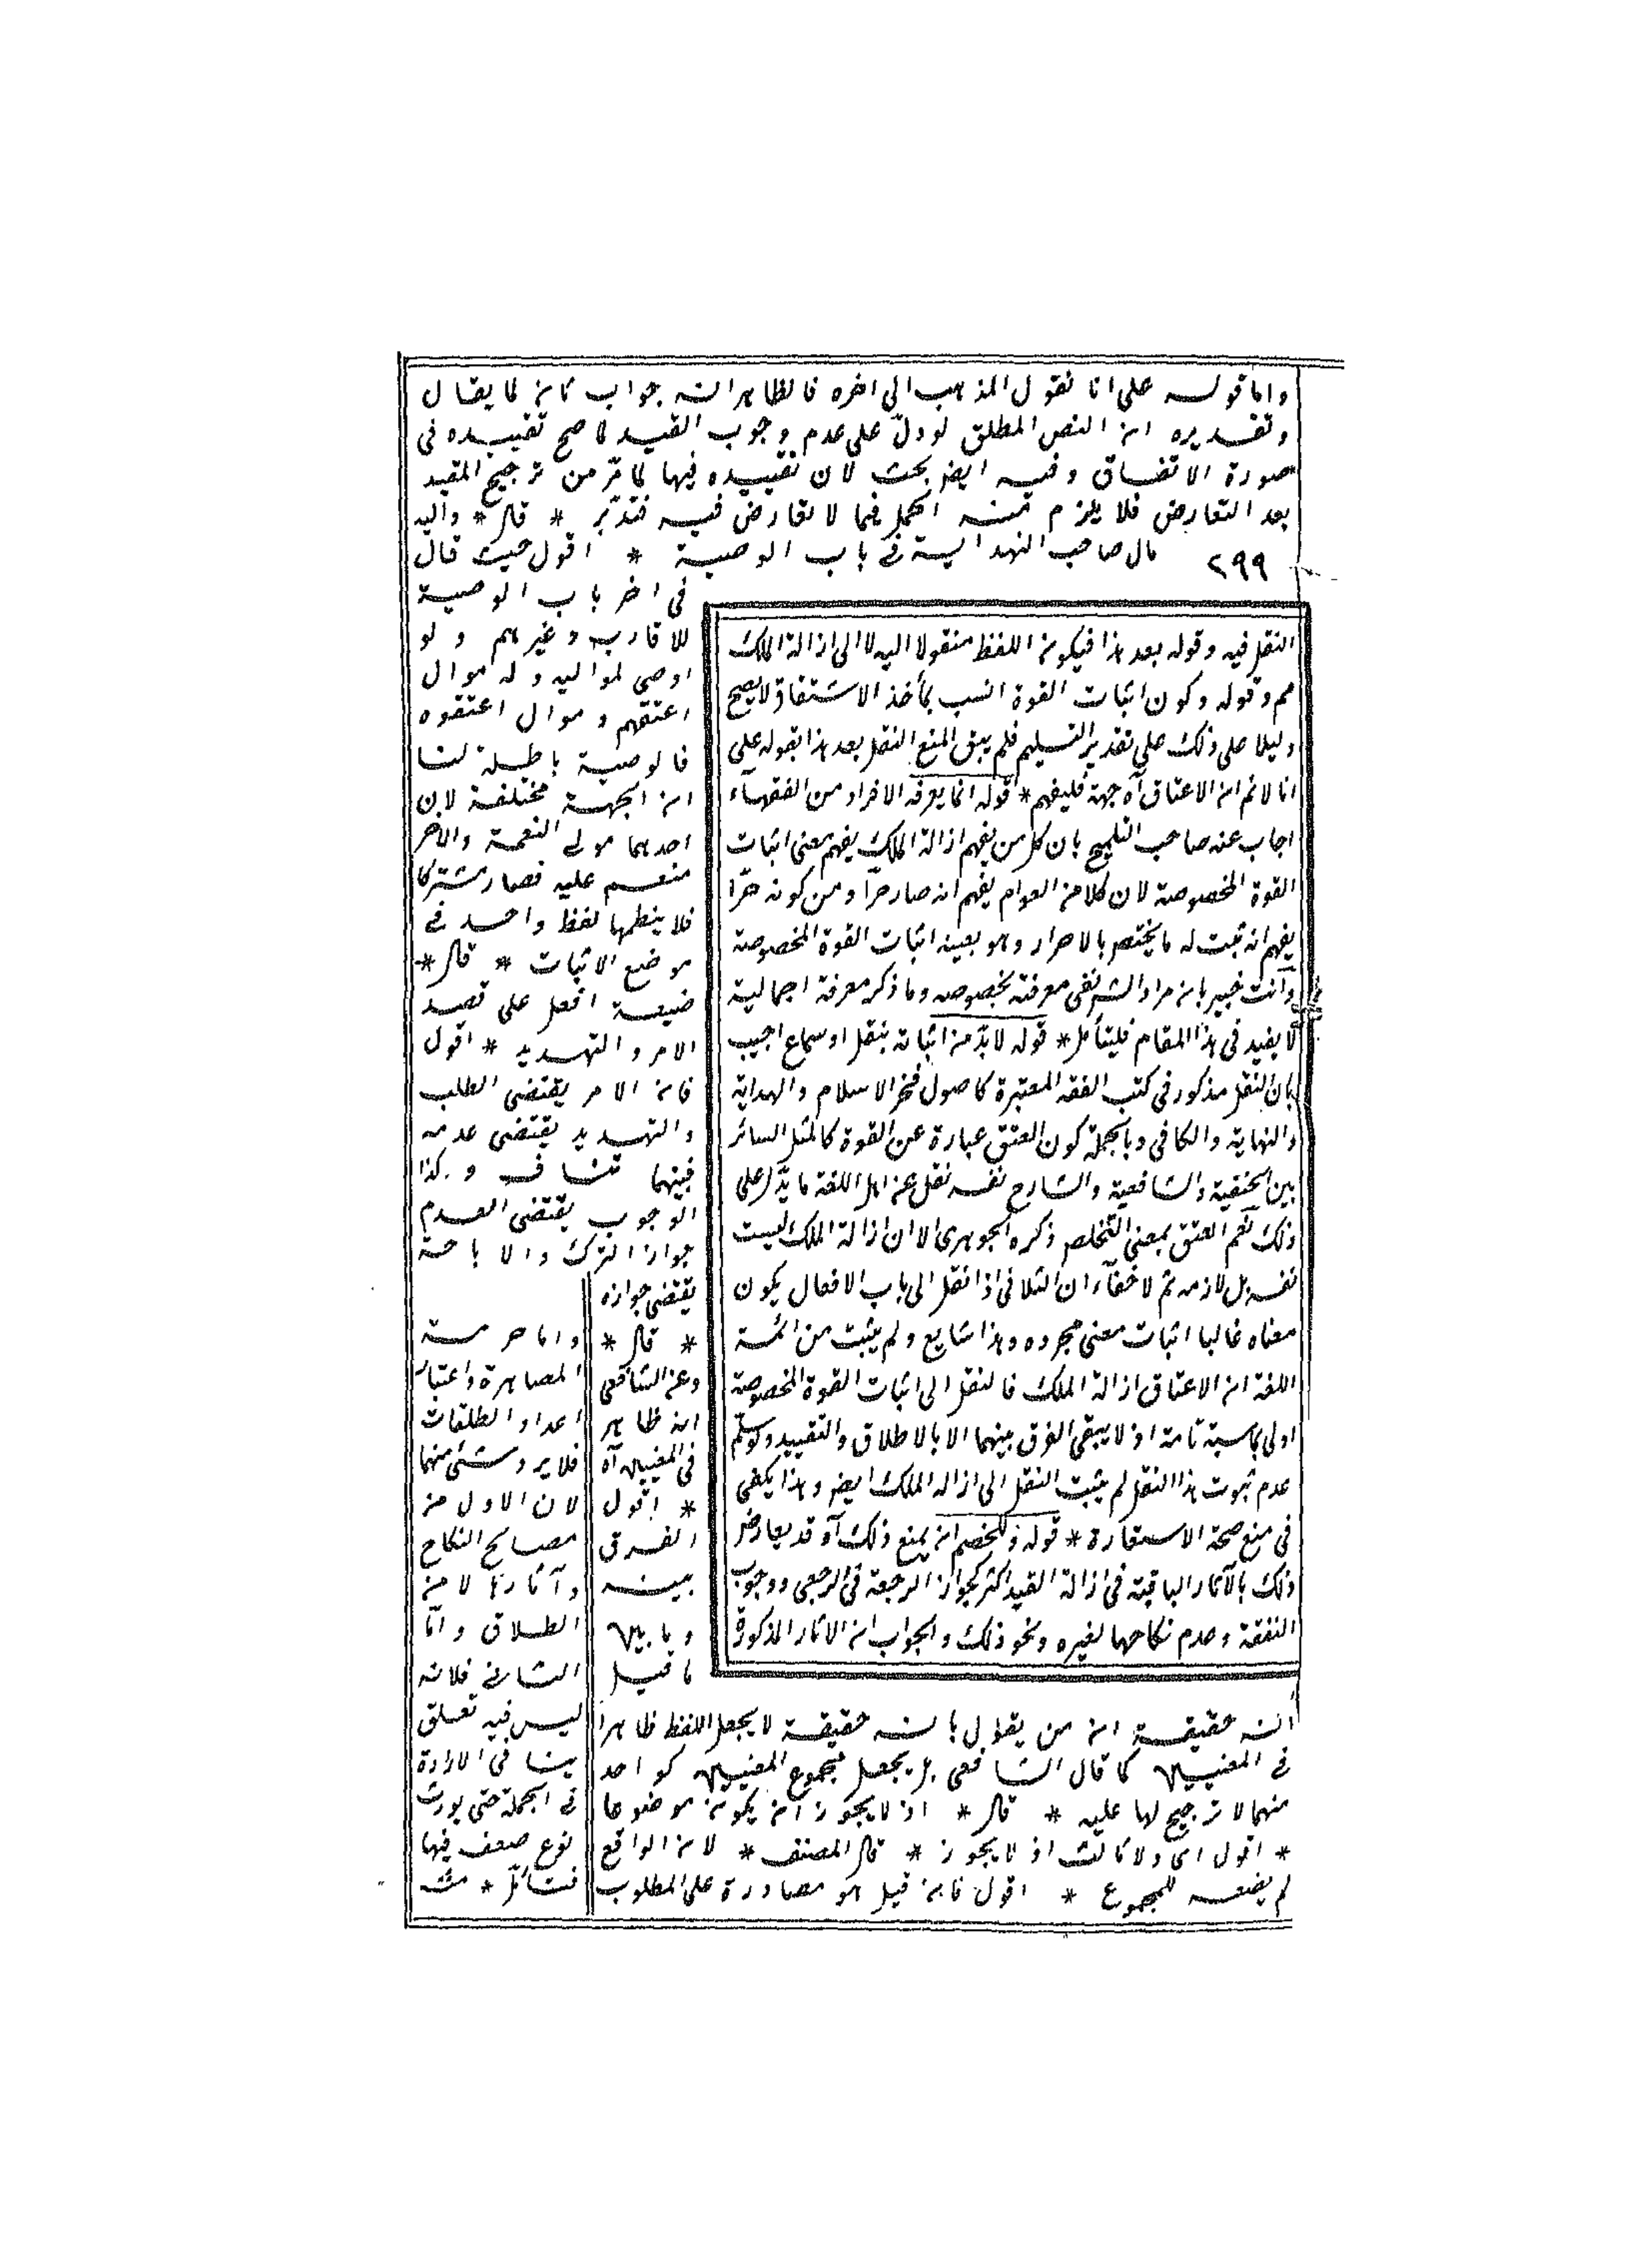 واما قوله على انا نقول المذهب الى اخره فالظاهر انه جواب ثان لما يقال
وتقديره ان النص المطلق لو دلّ على عدم وجوب القيد لما صح تقييده فى
صورة الاتفاق وفيه ايضا بحث لان تقييده فيها لما مرّ من ترجيح المقيد
بعد التعارض فلا يلزم منه الحمل فيما لا تعارض فيه فتدبّر * قال * واليه
٢٩٩ مال صاحب الهداية فى باب الوصية * اقول حيث قال
فى اخر باب الوصية
للاقارب وغيرهم ولو
اوصى لمواليه وله موال
اعتقهم وموال اعتقوه
فالوصية باطلة لنا
ان الجهة مختلفة لان
احدهما مولى النعمة والاخر
منعم عليه فصار مشتركا
فلا ينطمها لفظ واحد فى
موضع الاثبات * قال *
صيغة افعل على قصد
الامر والتهديد * اقول
فان الامر يقتضى الطلب
والتهديد يقتضى عدمه
فبينهما تناف وكذا
الوجوب يقتضى العدم
جواز الترك والاباحة
يقتضى جوازه
* قال *
وعن الشافعى
انه ظاهر
فى المعنيين آه
* اقول
الفرق
بينه
وما بين
ما قيل
انه حقيقة ان من يقول بانه حقيقة لا يجعل اللفظ ظاهرا
فى المعنيين كما قال الشافعى بل يجعل مجموع المعنيين كواحد
منهما لا ترجيح لها عليه * قال * اذ لا يجوز ان يكون موضوعا
* اقول اى ولا ثالث اذ لا يجوز * قال المصنف * لان الواقع
لم يضعه للمجموع * اقول فان قيل هو مصادرة على المطلوب
واما حرمة
المصاهرة واعتبار
اعداد الطلقات
فلا يرد شئ منهما
لان الاول من
مصالح النكاح
وآثارها لا من
الطلاق واما
الثانى فلانه
ليس فيه تعلق
بينا فى الارادة
فى الجملة حتى يورث
نوع ضعف فيها
فتأمل * منه
النقل فيه وقوله بعد هذا فيكون اللفظ منقولا اليه لا الى ازالة الملك
مم وقوله وكون اثبات القوة انسب بمأخذ الاشتقاق لا يصح
دليلا على ذلك على تقدير التسليم فلم يبق المنع النقل بعد هذا بقوله على
انا لا نم ان الاعتاق آه جهة فليفهم * قوله انما يعرفه الافراد من الفقهاء
اجاب عنه صاحب التلويح بان كل من يفهم ازالة الملك يفهم معنى اثبات
القوة المخصوصة لان كلا من العوام يفهم انه صار حرّا ومن كونه حرّا
يفهم انه ثبت له ما يختص بالاحرار وهو بعينه اثبات القوة المخصوصة
وانت خبير بان مراد الشر نفى معرفته بخصوصه وما ذكر معرفة اجمالية
لا يفيد فى هذا المقام فليتأمل * قوله لا بدّ من اثباته بنقل او سماع اجيب
بان النقل مذكور فى كتب الفقه المعتبرة كاصول فخر الاسلام والهداية
والنهاية والكافى وبالجملة كون العتق عبارة عن القوة كالمثل السائر
بين الحنفية والشافعية والشارح نفسه نقل عن اهل اللغة ما يدّل على
ذلك نعم العتق بمعنى التخلص ذكره الجوهرى الا ان ازالة الملك ليست
نفسه بل لازمه ثم لا خفاء ان الثلاثى اذا نقل الى باب الافعال يكون
معناه غالبا اثبات معنى مجرده وهذا شايع ولم يثبت من ائمة
اللغة ان الاعتاق ازالة الملك فالنقل الى اثبات القوة المخصوصة
اولى بمناسبة تامة اذ لا يبقى الفرق بينهما الا بالاطلاق والتقييد ولو سلم
عدم ثبوت هذا النقل لم يثبت النقل الى ازالة الملك ايضا وهذا يكفى
فى منع صحة الاستعارة * قوله وللخصم ان يمنع ذلك آه قد يعارض
ذلك بالآثار الباقية فى ازالة القيد اكثر كجواز الرجعة فى الرجعى ووجوب
النفقة وعدم نكاحها لغيره ونحو ذلك والجواب ان الاثار المذكورة